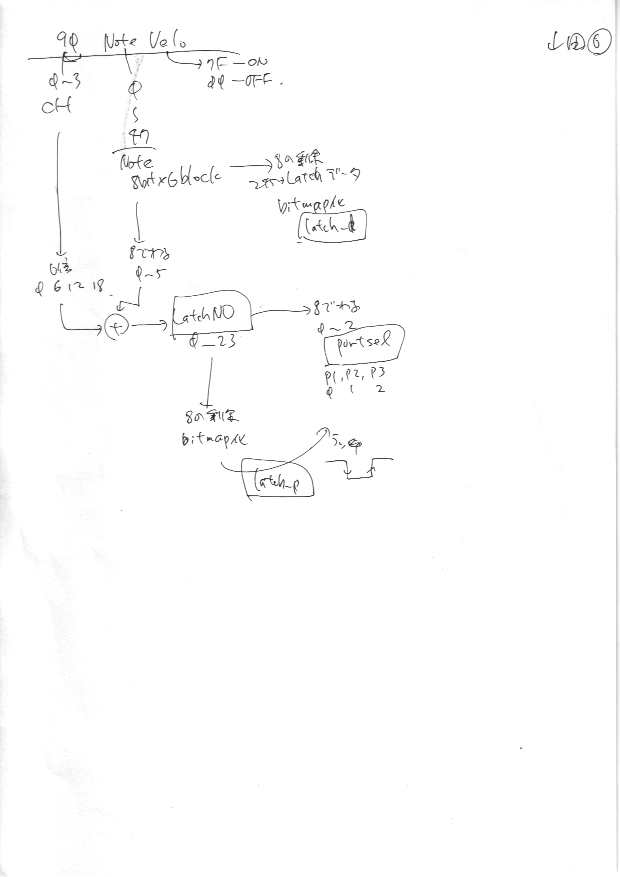 ↓図⑥
9φ Note Velo
7F ー ON
φφ ー OFF.
φ~3
CH
φ
~
47
Note
8bit×6block
8の剰余
Latchデータ
bitmap化
Latch_d
8でわる
φ~5
6倍
φ 6 12 18
+
LatchNO
φ ー 23
8でわる
φ ~ 2
portsel
P1, P2, P3
φ 1 2
8の剰余
bitmap化
Latch_p